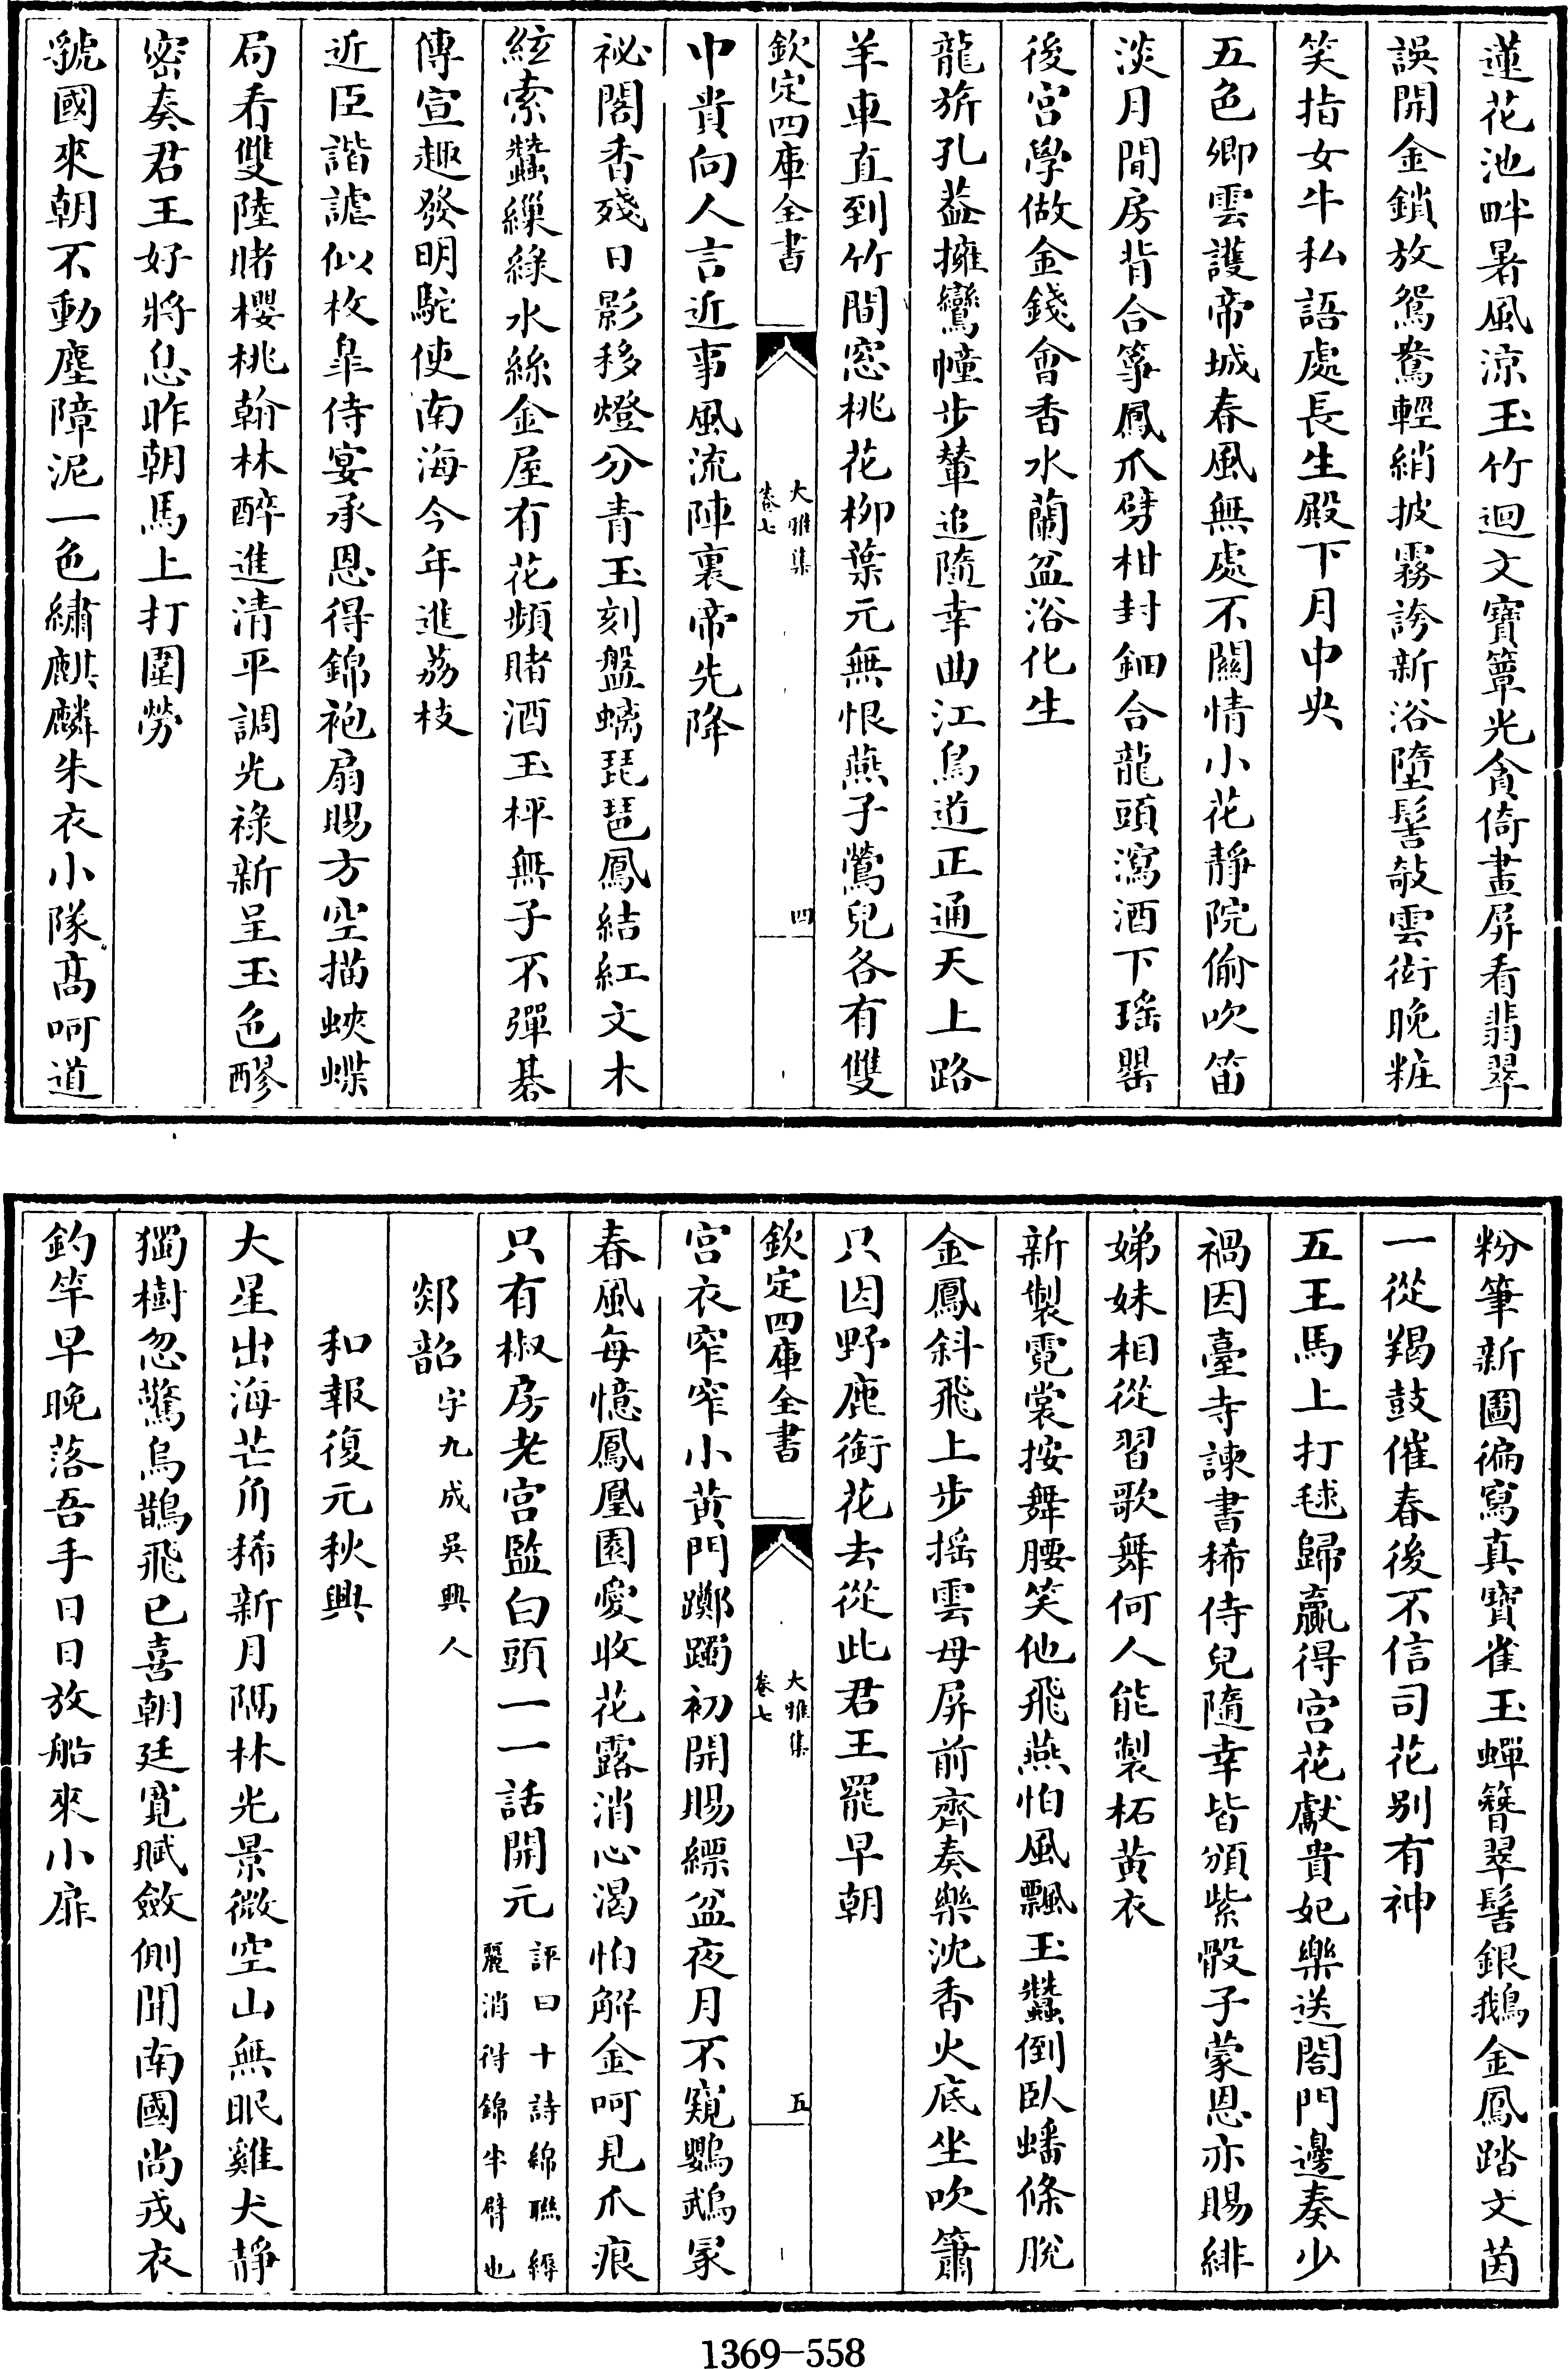 蓮花池畔暑風涼玉竹迴文寶簟光貪倚畫屏看翡翠
誤開金鎖放鴛鴦輕綃披霧誇新浴墮髻敧雲衒晚粧
笑指女牛私語處長生殿下月中央
五色卿雲護帝城春風無處不關情小花靜院偷吹笛
淡月閒房背合箏鳳爪劈柑封鈿合龍頭瀉酒下瑤罌
後宮學做金錢會香水蘭盆浴化生
龍旂孔葢擁鸞幢步輦追隨幸曲江鳥道正通天上路
羊車直到竹間窓桃花柳葉元無恨燕子鶯兒各有雙
欽定四庫全書
大雅集
卷七
四
中貴向人言近事風流陣裏帝先降
祕閣香殘日影移燈分青玉刻盤螭琵琶鳳結紅文木
絃索蠶繅綠水絲金屋有花頻賭酒玉枰無子不彈棊
傳宣趣發明駝使南海今年進荔枝
近臣諧謔似枚皐侍宴承恩得錦袍扇賜方空描蛺蝶
局看雙陸賭櫻桃翰林醉進清平調光祿新呈玉色醪
密奏君王好將息昨朝馬上打圍勞
虢國來朝不動塵障泥一色繡麒麟朱衣小隊高呵道
粉筆新圖徧寫真寶雀玉蟬簪翠髻銀鵝金鳳踏文茵
一從羯鼓催春後不信司花別有神
五王馬上打毬歸贏得宮花獻貴妃樂送閤門邊奏少
禍因臺寺諫書稀侍兒隨幸皆頒紫骰子蒙恩亦賜緋
娣妹相從習歌舞何人能製柘黃衣
新製霓裳按舞腰笑他飛燕怕風飄玉蠶倒臥蟠條脫
金鳳斜飛上步搖雲母屏前齊奏樂沈香火底坐吹簫
只因野鹿銜花去從此君王罷早朝
欽定四庫全書
大雅集
卷七
五
宮衣窄窄小黃門躑躅初開賜縹盆夜月不窺鸚鵡冢
春風每憶鳳凰園愛收花露消心渴怕解金呵見爪痕
只有椒房老宮監白頭一一話開元評曰十詩綿聯縟
麗消得錦半臂也
郯韶字九成吳興人
和報復元秋興
大星出海芒角稀新月隔林光景微空山無眠雞犬靜
獨樹忽驚烏鵲飛已喜朝廷寬賦斂側聞南國尚戎衣
釣竿早晚落吾手日日放船來小扉
1369-558